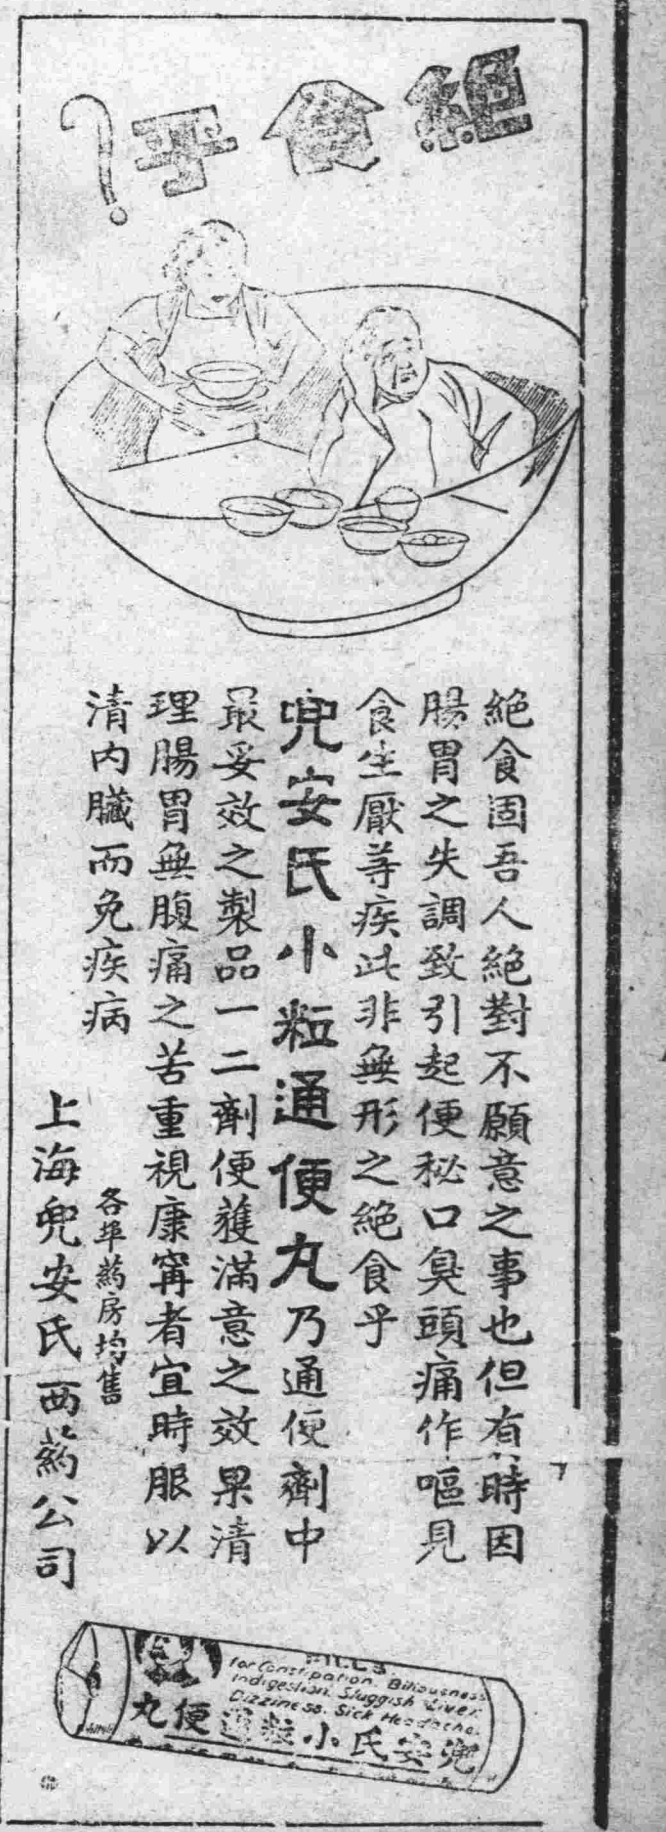 絕食乎?
絕食固吾人絕對不願意之事也但有時因
腸胃之失調致引起便秘口臭頭痛作嘔見
食生厭等疾此非無形之絕食乎
兜安氏小粒通便丸乃通便劑中
最妥效之製品一二劑便獲滿意之效果清
理腸胃無腹痛之苦重視康甯者宜時服以
清內臟而免疾病
各埠葯房均售
上海兜安氏西葯公司
PILLS
for Constipation. Biliousness
Indigestion. Sluggish Liver.
Dizziness. Sick Headache.
兜安氏小粒通便丸